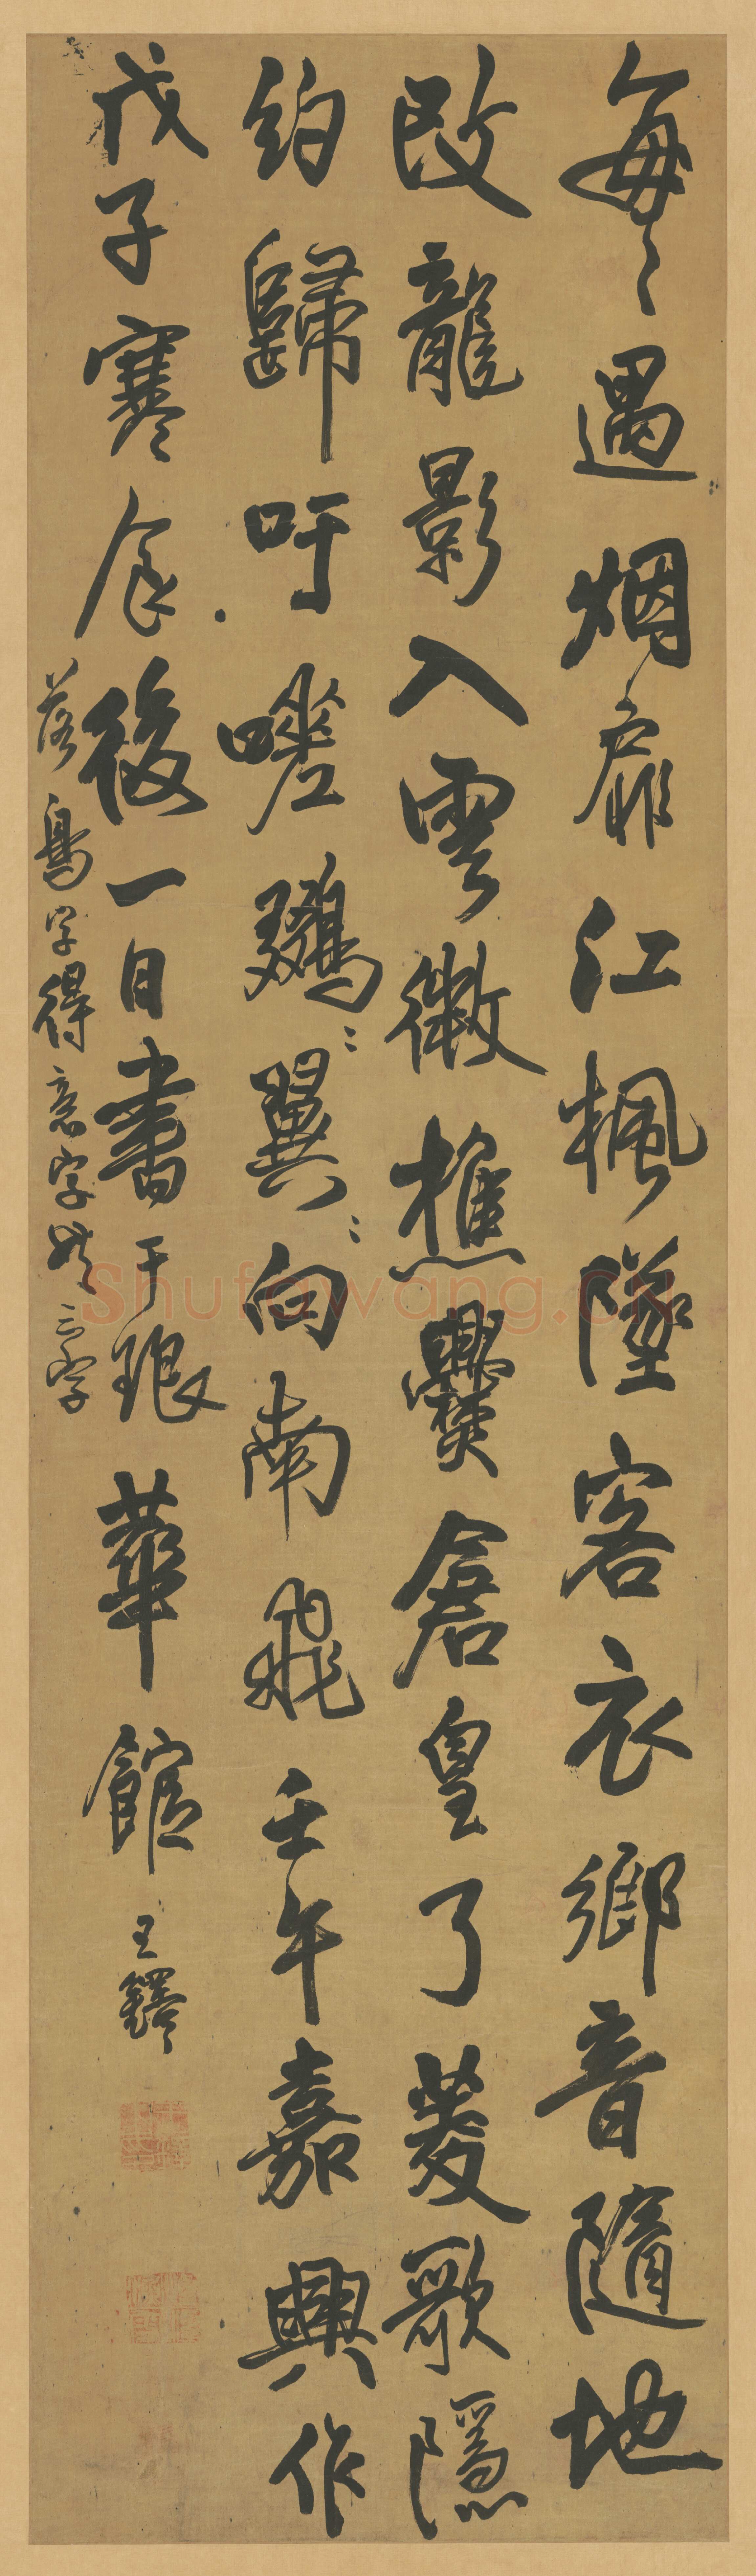 每々遇烟扉江楓墜客衣鄉音隨地
改龍影入雲微樵爨倉皇了菱歌隱
約歸吁嗟鵽:翼:向南飛壬午嘉興作
戊子寒食後一日書于琅華館王鐸
落鳥字得意字歟言字
Shufawang.CN